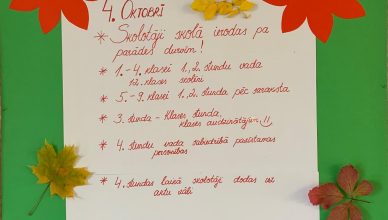 4. OKTOBRĪ
* Skolotāji skolā ierodas pa
parādes durvīm!
* 1.-4. klasei 1., 2. stundu vada
12. klases skolēni
* 5.-9. klasei 1., 2. stunda pēc saraksta
* 3. stunda - Klases stunda,
Klases audzinātājiem,
* 4. stundu vada sabiedrībā pazīstamas
personības
* 4. stundas laikā skolotāji dodas uz
aktu zāli